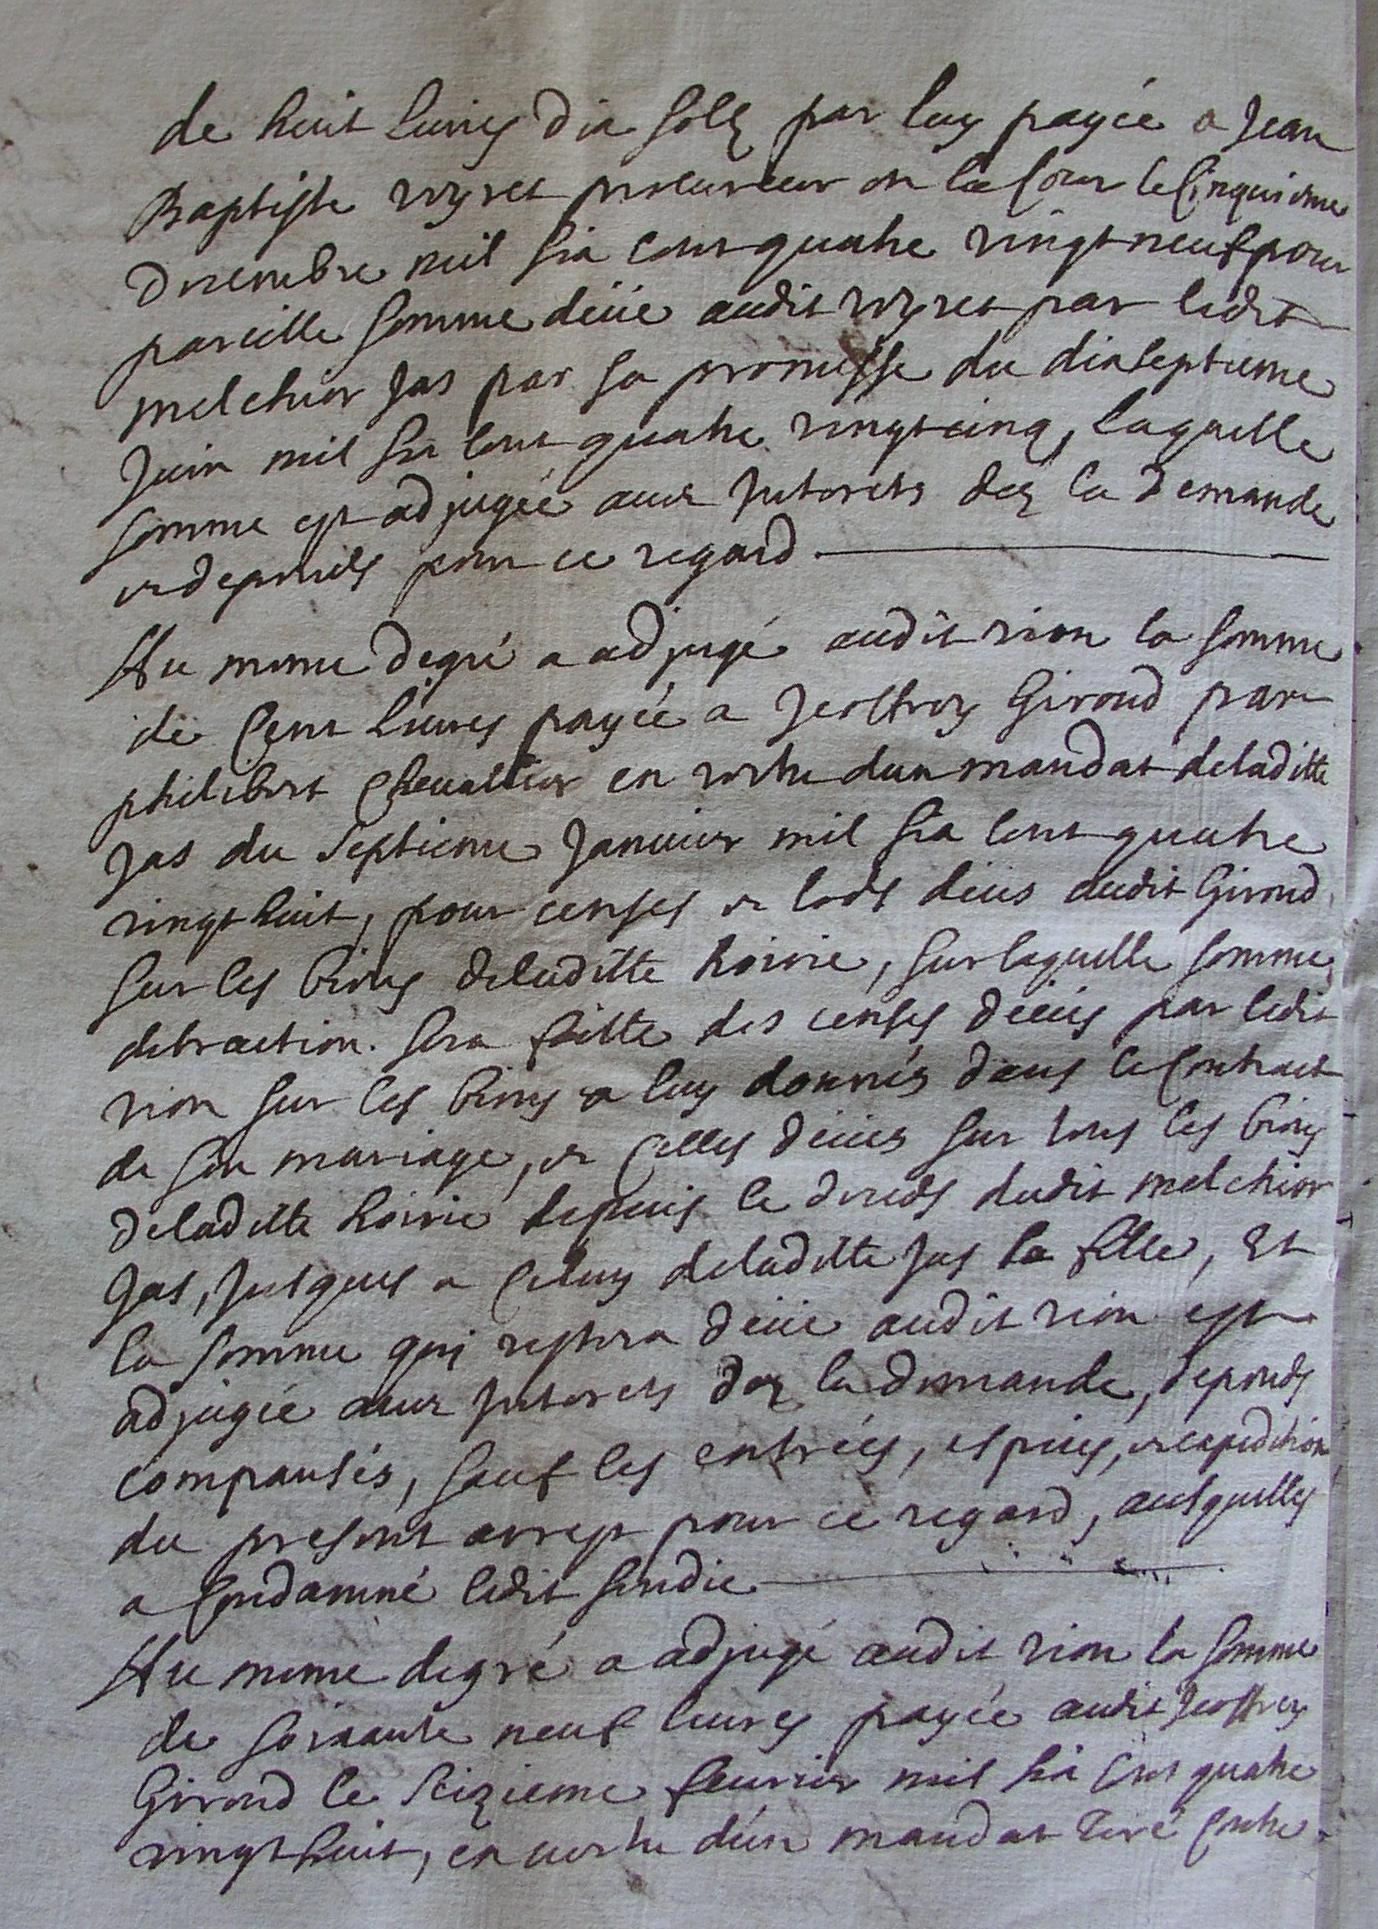 de huit livres dix solz par luy payée a Jean
Baptiste voyret procureur en la Cour le Cinquieme
Decembre mil six cent quatre vingt neuf pour
pareille somme deüe audit voyret par ledit
melchior Jas par sa promesse du dixseptieme
Juin mil six cent quatre vingt cinq, laquelle
somme est adjugée aux Interets dez la Demande
et depends pour ce regard
Au meme Degré a adjugé audit rion la somme
de Cent livres payée a Jeoffroy Giroud par
philibert Chevallier en vertu dun mandat deladitte
Jas du Septieme Janvier mil six cent quatre
vingt huit, pour censes et lods deües audit Giroud
sur les biens deladitte hoirie, sur laquelle somme
detraction sera faitte des censes deües par ledit
rion sur les biens a luy donnés dans le Contract
de son mariage, et Celles deües sur tous les biens
deladitte hoirie depuis le deceds dudit melchior
Jas, Jusques a Celuy deladitte Jas sa fille, Et
la somme qui restera deüe audit rion est
adjugée aux Interets dez la demande, depends
compensés, sauf les entrées, espices, et expedition
du present arrest pour ce regard, ausquelles
a Condamné ledit sindic
Au meme degré a adjugé audit rion la somme
de soixante neuf livres payée audit Jeoffroy
Giroud le Seizieme fevrier mil six cent quatre
vingt huit, en vertu d'un mandat tiré Contre